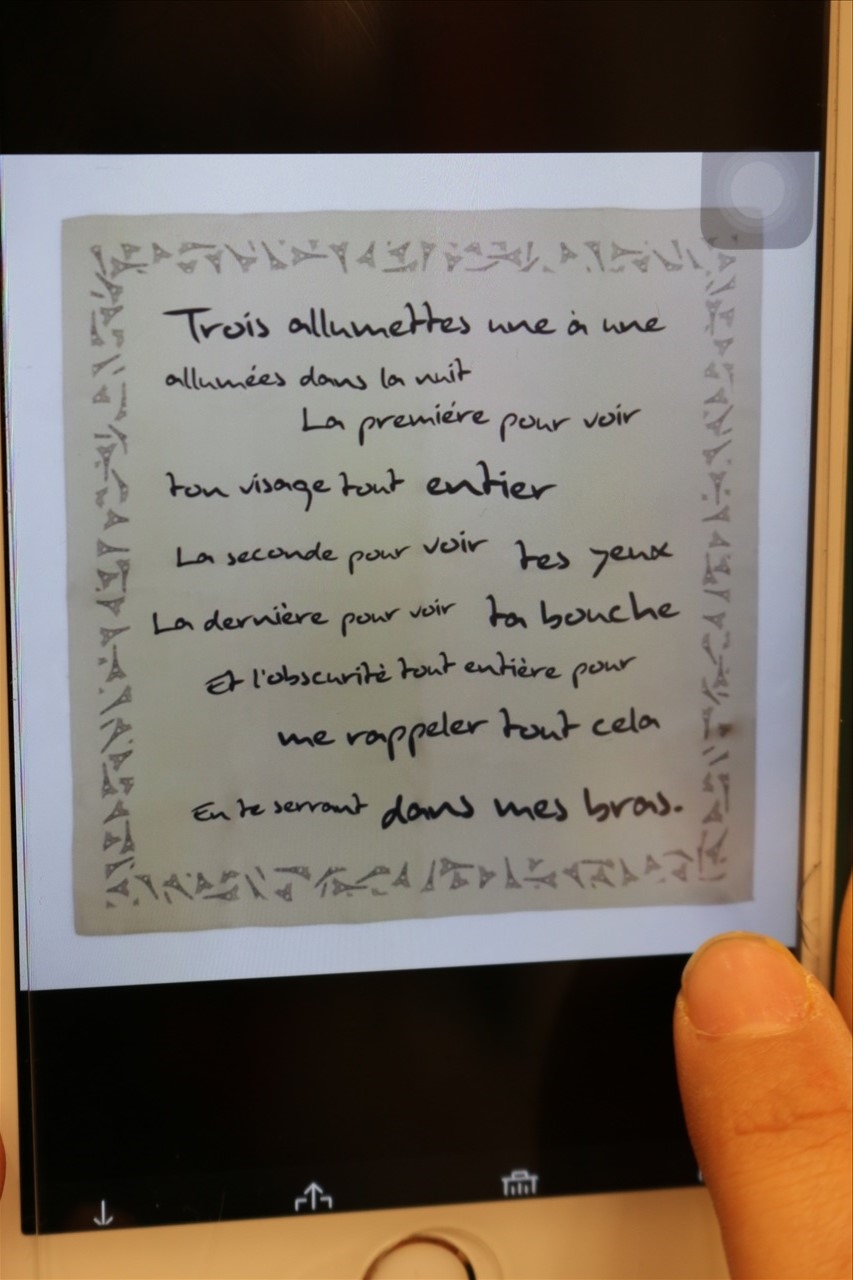 Trois allumettes une à une
allumées dans la nuit
La premiére pour voir
ton visage tout entier
La seconde pour voir tes yeux
La dernière pour voir ta bouche
Et l'obscuritè tout entière pour
me rappeler tout cela
En te serrant dans mes bras.